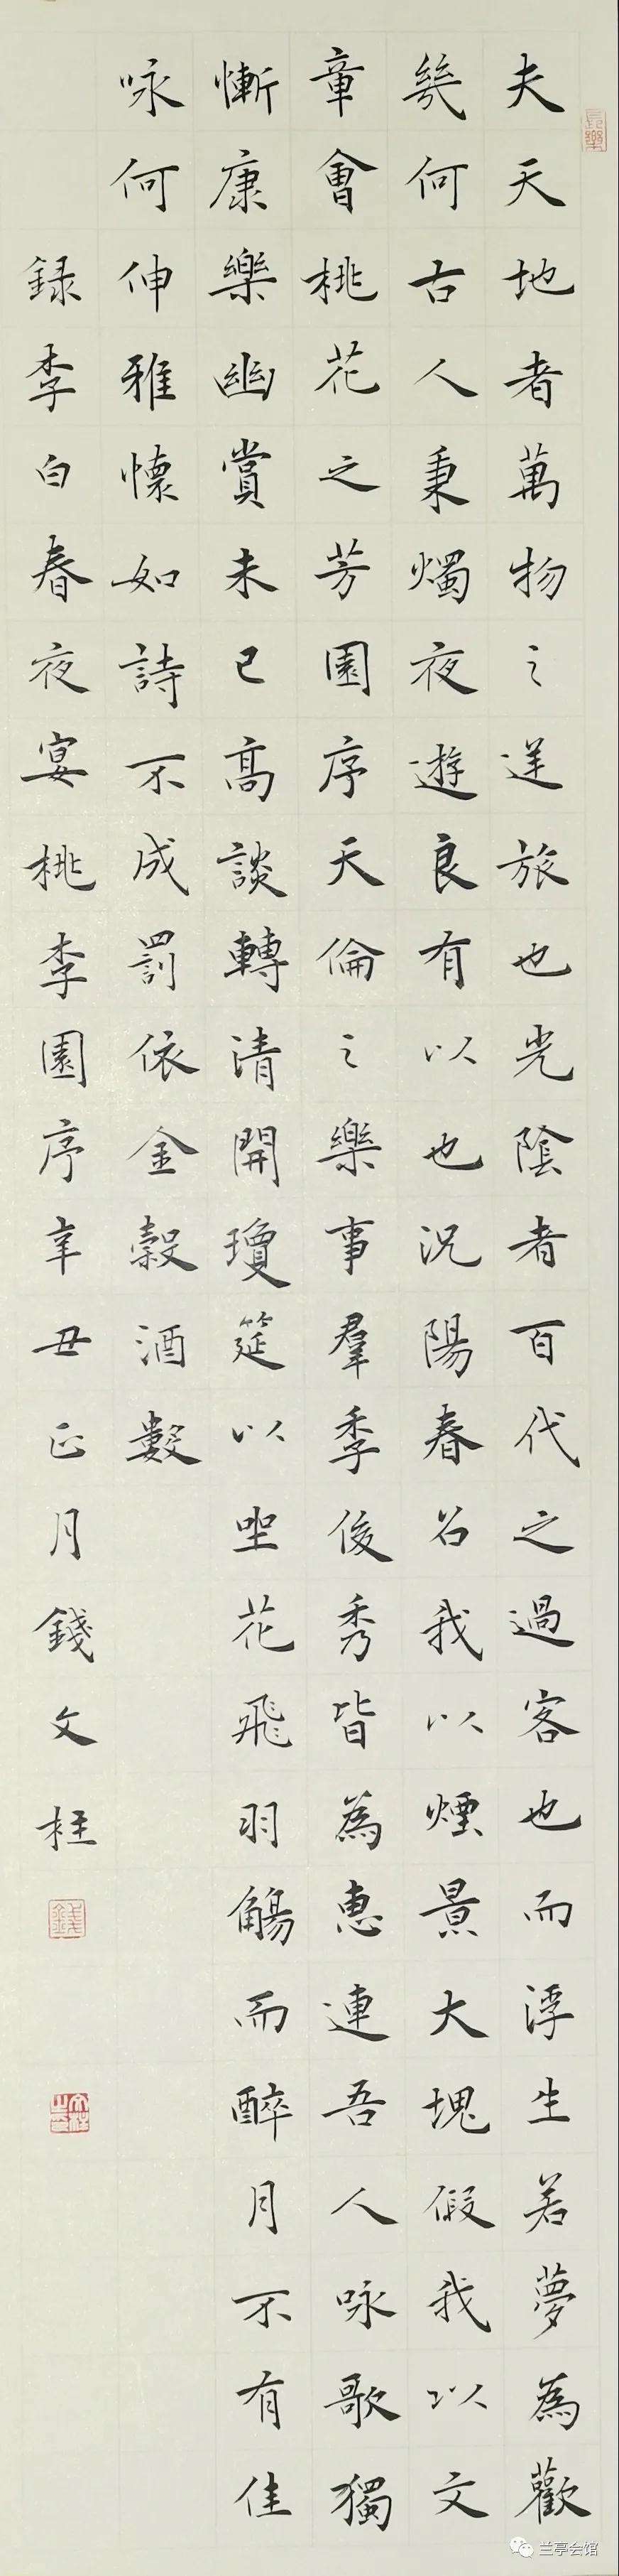 長樂
夫天地者萬物之逆旅也光陰者百代之過客也而浮生若夢為歡
幾何古人秉燭夜遊良有以也況陽春召我以煙景大塊假我以文
章會桃花之芳園序天倫之樂事羣季俊秀皆為惠連吾人咏歌獨
慚康樂幽賞未已高談轉清開瓊筵以坐花飛羽觴而醉月不有佳
咏何伸雅懷如詩不成罰依金穀酒數
録李白春夜宴桃李園序辛丑正月錢文柱
錢
兰亭会馆